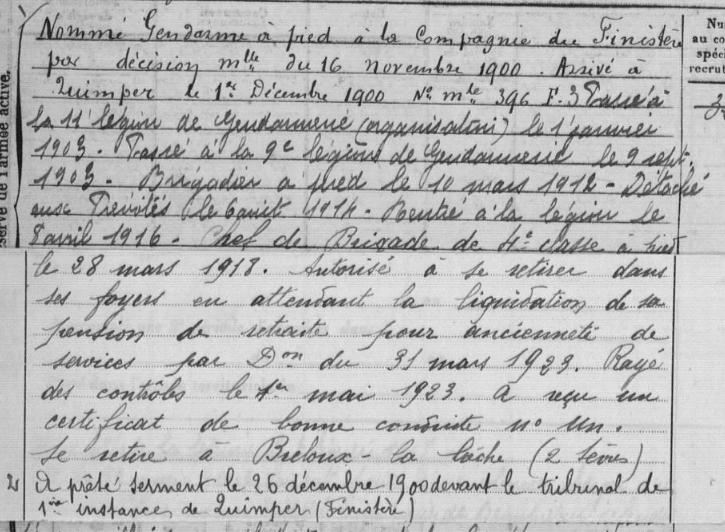 Nommé Gendarme à pied à la Compagnie du Finistère
par décision mlle du 16 Novembre 1900. Arrivé à
Quimper le 1er Décembre 1900 No mle 396 F. 3 Passé à
la 11 légion de Gendarmerie (organisation) le 1 janvier
1903. Passé à la 9e légion de Gendarmerie le 9 sept.
1903. Brigadier à pied le 10 mars 1912 - Détaché
aux Prévôtés le 6 août 1914. Rentré à la légion le
avril 1916. Chef de Brigade de 4e classe à pied
le 28 mars 1918. Autorisé à se retirer dans
ses foyers en attendant la liquidation de sa
pension de retraite pour ancienneté de
services par Don du 31 mars 1923. Rayé
des contrôles le 1er mai 1923. a reçu un
certificat de bonne conduite no Un.
Se retire à Breloux-la Crèche (2 Sèvres)
A prêté serment le 26 décembre 1900 devant le tribunal de
1re instance de Quimper (Finistère)
serve de l'armée active.
Nu
au co
spéci
recrut